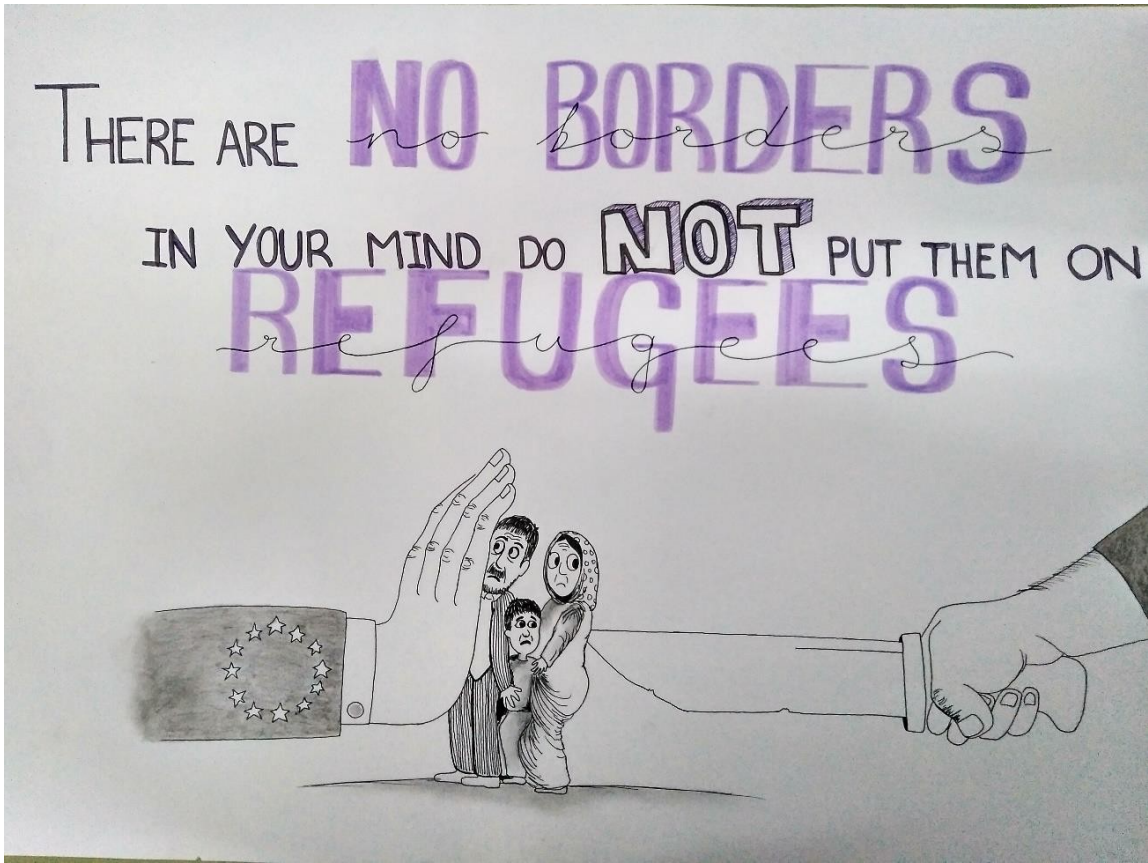 THERE ARE NO BORDERS
no borders
IN YOUR MIND DO NOT PUT THEM ON
REFUGEES
refugees